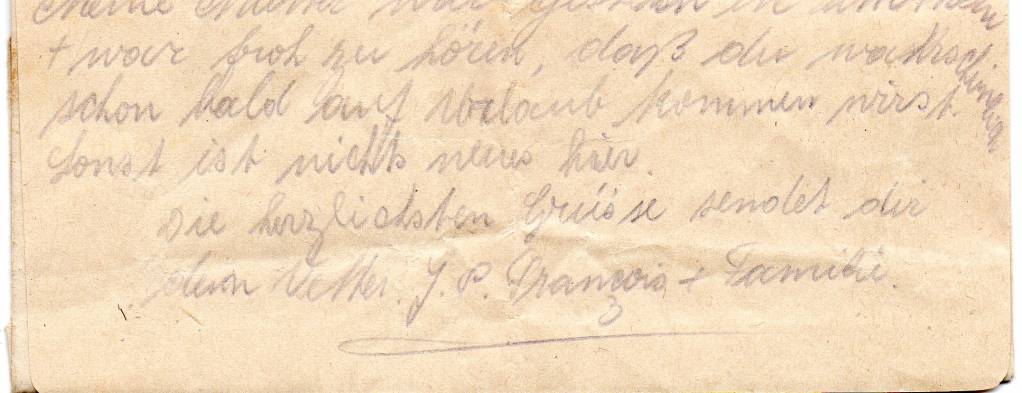 Meine Mutter war gestern in
+ war froh zu hören, daß du wahrscheinlich
schon bald auf Urlaub kommen wirst.
Sonst ist nichts neues hier.
Die herzlichsten Grüsse sendet dir
dein Vetter. J. P. François + Familie.